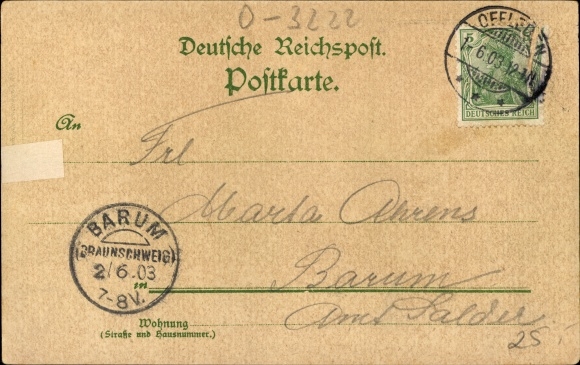 O-3222
Deutsche Reichspost.
Postkarte.
OFFLEBEN
6.03.12-1N
5
DEUTSCHES REICH
An
Frl
Marta Ahrens
BARUM
(BRAUNSCHWEIG)
2/6.03
7-8V.
in
Barum
Amt Salder
Wohnung
(Straße und Hausnummer.)
25